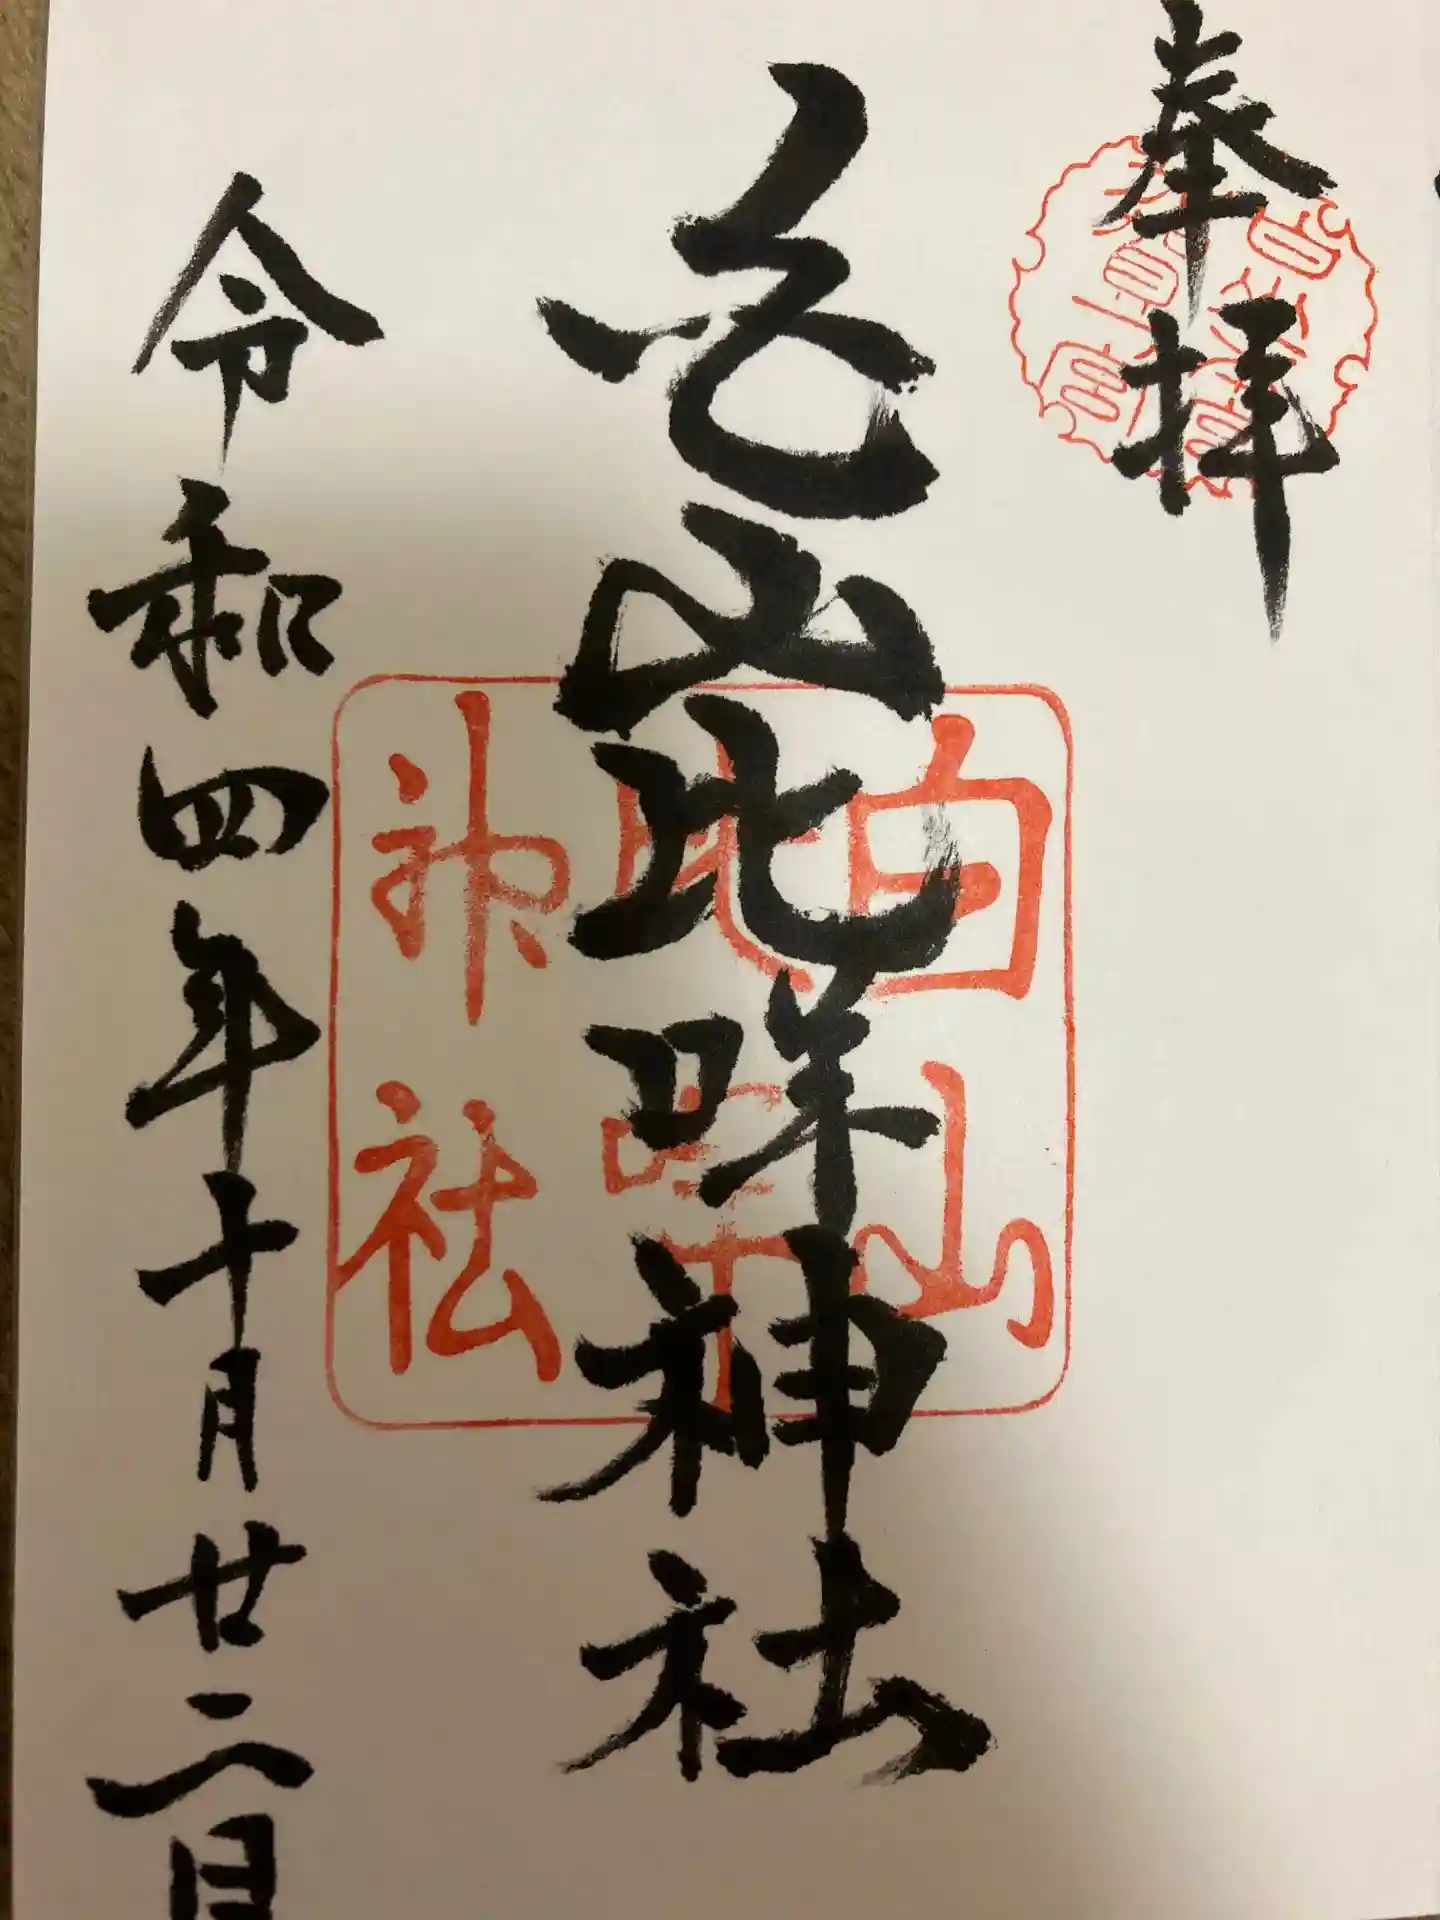 奉拝
白山比咩神社
白山
比咩
神社
令和四年十月廿二日